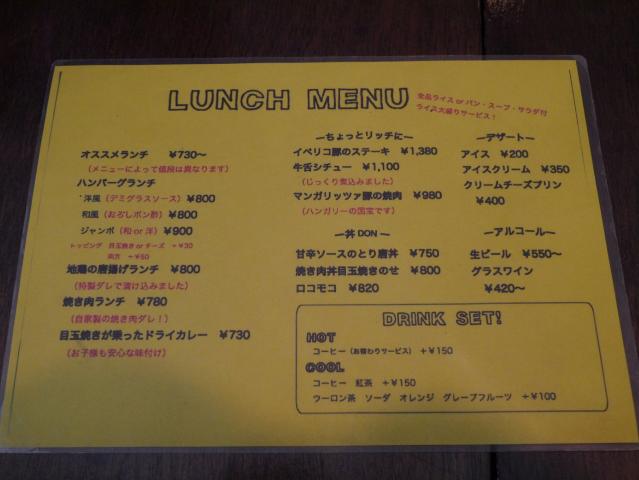 LUNCH MENU
全品ライス or パン・スープ・サラダ付
ライス大盛りサービス！
オススメランチ ￥730～
（メニューによって値段は異なります）
ハンバーグランチ
洋風（デミグラスソース）￥800
和風（おろしポン酢）￥800
ジャンボ（和 or 洋）￥900
トッピング 目玉焼き or チーズ ＋￥30
両方 ＋￥50
地鶏の唐揚げランチ ￥800
（特製ダレで漬け込みました）
焼き肉ランチ ￥780
（自家製の焼き肉ダレ！）
目玉焼きが乗ったドライカレー ￥730
（お子様も安心な味付け）
―ちょっとリッチに―
イベリコ豚のステーキ ￥1,380
牛舌シチュー ￥1,100
（じっくり煮込みました）
マンガリッツァ豚の焼肉 ￥980
（ハンガリーの国宝です）
―丼 DON―
甘辛ソースのとり唐丼 ￥750
焼き肉丼目玉焼きのせ ￥800
ロコモコ ￥820
―デザート―
アイス ￥200
アイスクリーム ￥350
クリームチーズプリン
￥400
―アルコール―
生ビール ￥550～
グラスワイン
￥420～
DRINK SET!
HOT
コーヒー（お替わりサービス） ＋￥150
COOL
コーヒー 紅茶 ＋￥150
ウーロン茶 ソーダ オレンジ グレープフルーツ ＋￥100